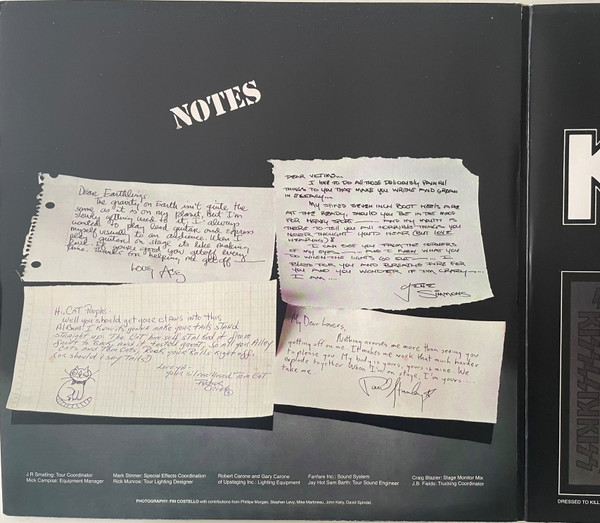 NOTES
Dear Earthlings
The gravity on Earth isn't quite the
same as it is on my planet, but I'm
slowly getting used to it. I always
wanted to play lead guitar and express
myself visually to an audience. When I
play guitar on stage its like making
love. If you're good you get off every
time. Thanks for helping me get off
LOVE, Ace
DEAR VICTIMS...
I LOVE TO DO ALL THOSE DELICIOUSLY PAINFUL
THINGS TO YOU THAT MAKE YOU WRITHE AND GROAN
IN ECSTACY...
MY SPIKED SEVEN INCH BOOT HEELS ARE
AT THE READY, SHOULD YOU BE IN THE MOOD
FOR HEAVY SPORT AND MY MOUTH IS
THERE TO TELL YOU ALL HORRIBLE THINGS YOU
NEVER THOUGHT YOU'D HEAR (BUT LOVE
I CAN SEE YOU FROM THE CORNERS
OF MY EYES... AND I KNOW WHAT YOU
DO WHEN THE LIGHTS GO OUT... I
BLEED FOR YOU AND BREATHE FIRE FOR
YOU AND YOU WONDER IF I'M CRAZY...
I AM...
Gene
Simmons
Hi, CAT People:
Well you should get your claws into this
Album! I know it's gonna make your tails stand
straight up. The CAT him self
so all you Alley
Cats and Tom Cats, Rock your Balls right off.
(or should I say Tails!)
Love ya
Tom CAT
Peter
Criss
My Dear Lovers,
Nothing arouses me more than seeing you
getting off on me. It makes me work that much harder
to please you. My body is yours, yours is mine. We
explode together. When I'm on stage, I'm yours...
take me.
Paul Stanley
J R Smalling: Tour Coordinator
Mick Campise: Equipment Manager
Mark Stinner: Special Effects Coordination
Rick Munroe: Tour Lighting Designer
Robert Carone and Gary Carone
of Upstaging Inc.: Lighting Equipment
Fanfare Inc.: Sound System
Jay Hot Sam Barth: Tour Sound Engineer
Craig Blazier: Stage Monitor Mix
J.B. Fields: Trucking Coordinator
PHOTOGRAPHY: FIN COSTELLO with contributions from Phillipa Morgan, Stephen Levy, Mike Martineau, John Kelly, David Spindel.
K
KISS KISS
DRESSED TO KILL